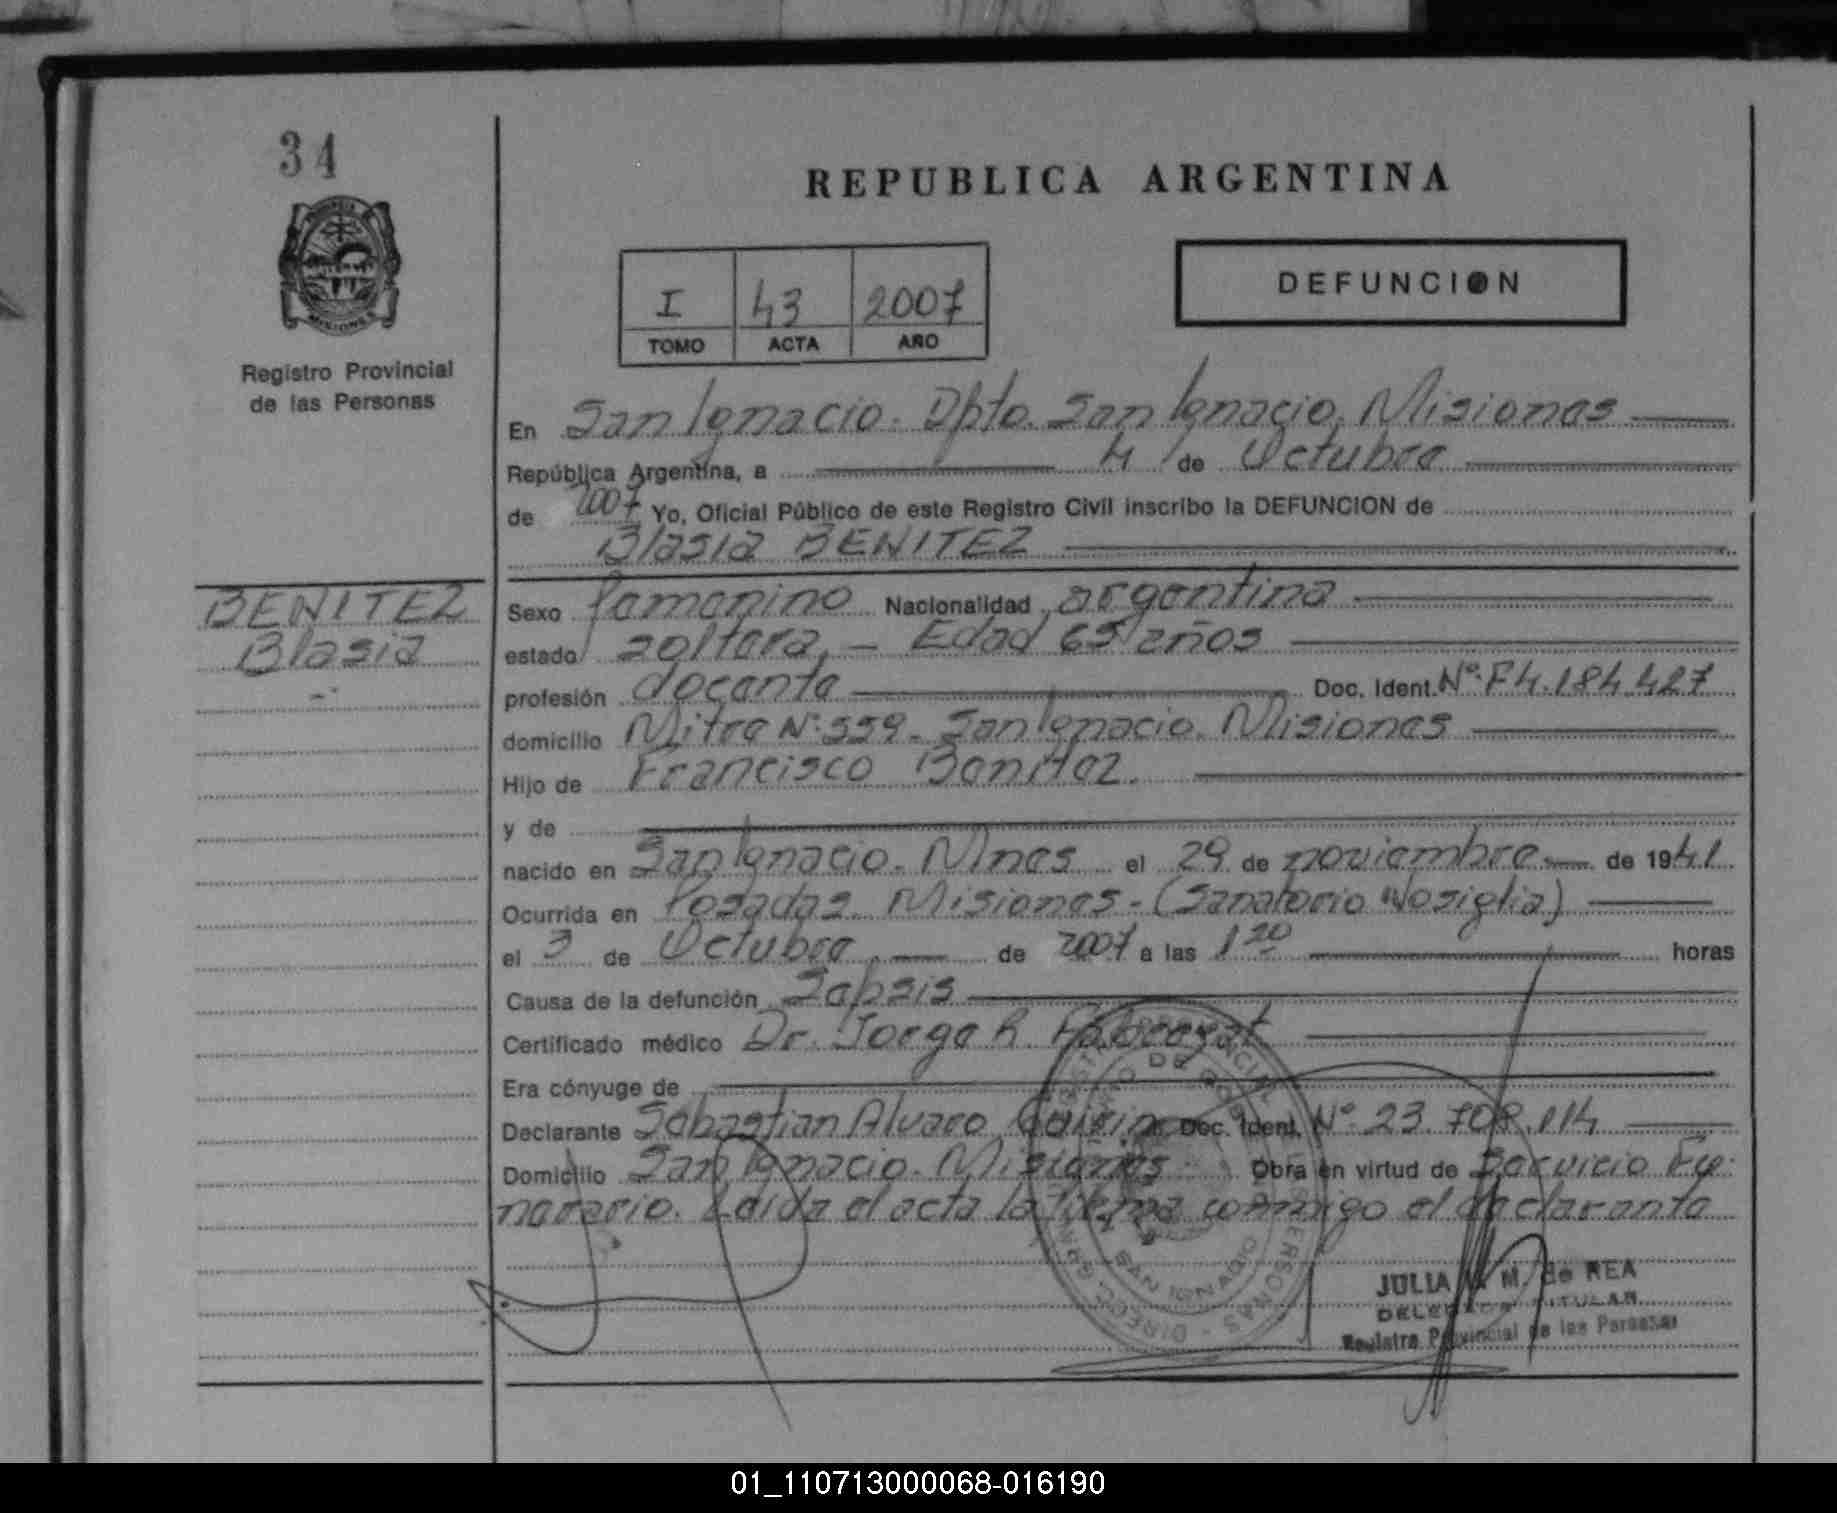 34
REPUBLICA ARGENTINA
DEFUNCION
I 43 2007
TOMO ACTA AÑO
Registro Provincial
de las Personas
MISIONES
En San Ignacio. Dpto. San Ignacio, Misiones
República Argentina, a 4 de Octubre
de 2007 Yo, Oficial Público de este Registro Civil inscribo la DEFUNCION de
Blasia BENITEZ
BENITEZ
Blasia
Sexo femenino Nacionalidad argentina
estado soltera, - Edad 65 años
profesión docente Doc. Ident. Nº F4.184.427
domicilio Mitre Nº 559. San Ignacio. Misiones
Hijo de Francisco Benitez.
y de
nacido en San Ignacio. Mnes el 29 de noviembre de 1941
Ocurrida en Posadas. Misiones - (Sanatorio Nosiglia)
el 3 de Octubre de 2007 a las 1 20 horas
Causa de la defunción Sepsis
Certificado médico Dr. Jorge R.
Era cónyuge de
Declarante Sebastian Alvaro Doc. Ident. Nº 23.708.114
Domicilio San Ignacio. Misiones Obra en virtud de Servicio Fu-
nerario. Leida el acta la firma conmigo el declarante
SAN IGNACIO
JULIA M. de REA
TITULAR
Registro Provincial de las Personas
01_110713000068-016190